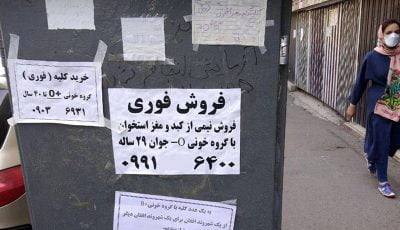 خرید کلیه ( فوری )
گروه خونی +O تا ۴۰ سال
۰۹۰۳ ۶۹۳۱
فروش فوری
فروش نیمی از کبد و مغز استخوان
با گروه خونی -O جوان ۲۹ ساله
۰۹۹۱ ۶۴۰۰
به یک عدد کلیه با گروه خونی
از یک شهروند افغان برای یک شهروند افغان دیگر